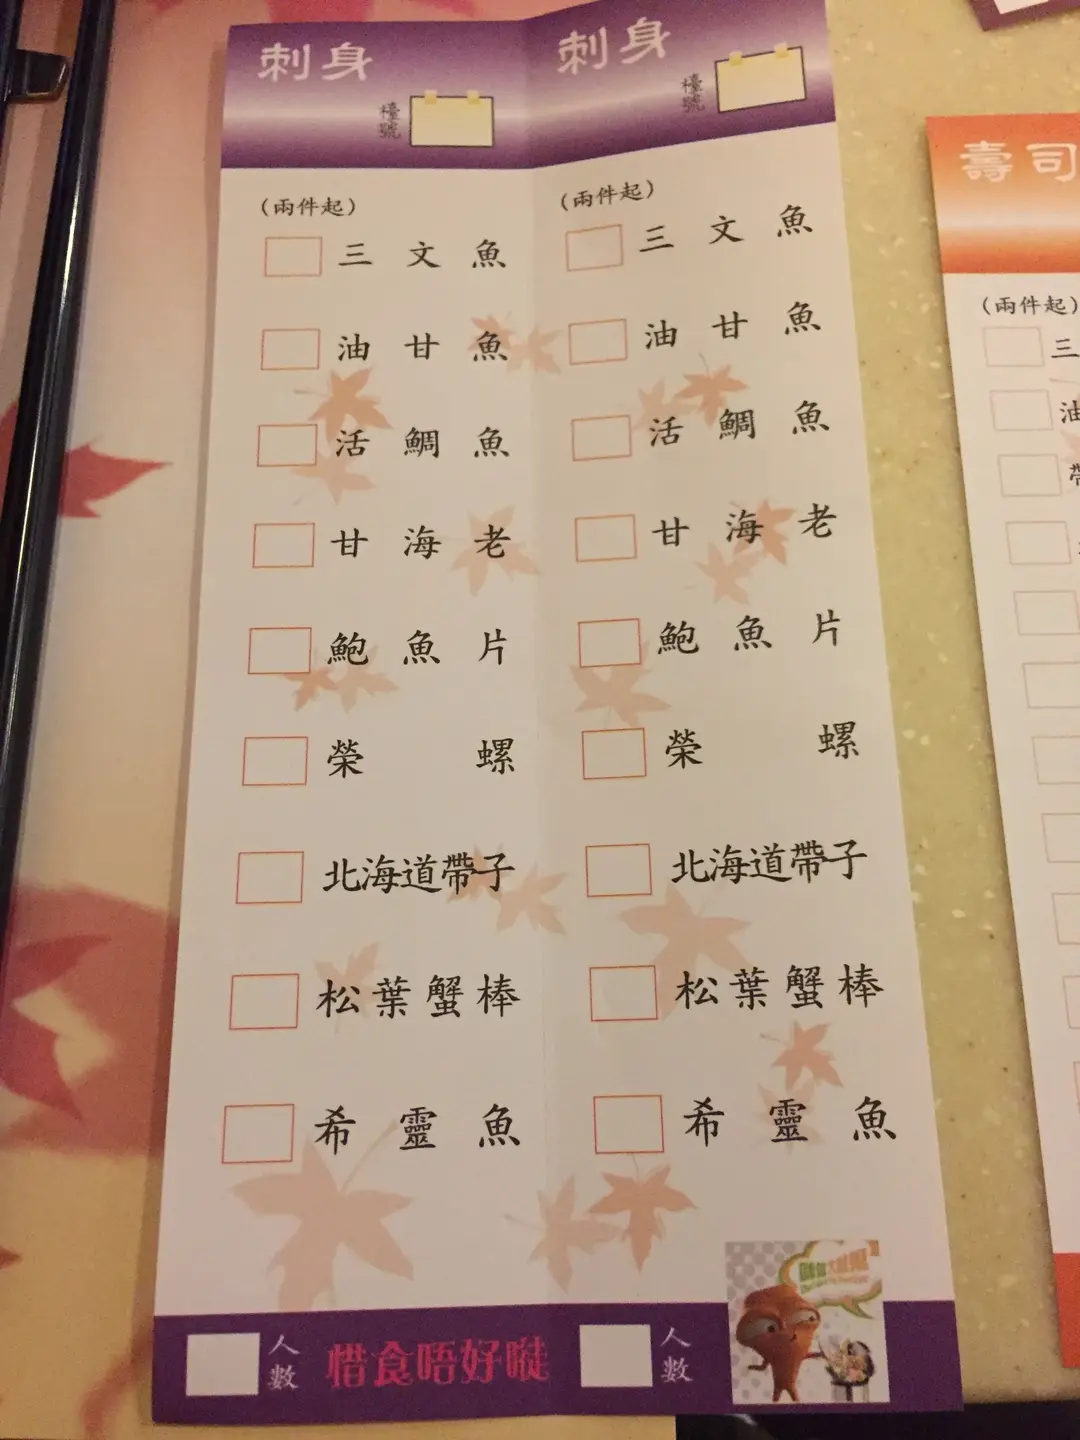 刺身
檯號
(兩件起)
三文魚
油甘魚
活鯛魚
甘海老
鮑魚片
榮螺
北海道帶子
松葉蟹棒
希靈魚
人數
惜食唔好嘥
刺身
檯號
(兩件起)
三文魚
油甘魚
活鯛魚
甘海老
鮑魚片
榮螺
北海道帶子
松葉蟹棒
希靈魚
人數
壽司
(兩件起)
三
油
帶